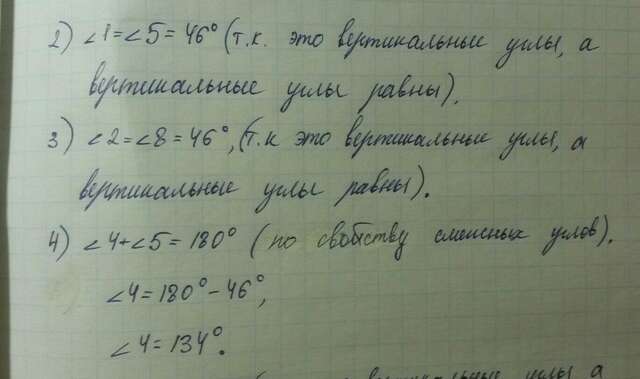 2) ∠1=∠5=46° (т.к. это вертикальные углы, а
вертикальные углы равны).
3) ∠2=∠8=46°, (т.к это вертикальные углы, а
вертикальные углы равны).
4) ∠4+∠5=180° (по свойству смежных углов).
∠4=180°-46°,
∠4=134°.
вертикальные углы а